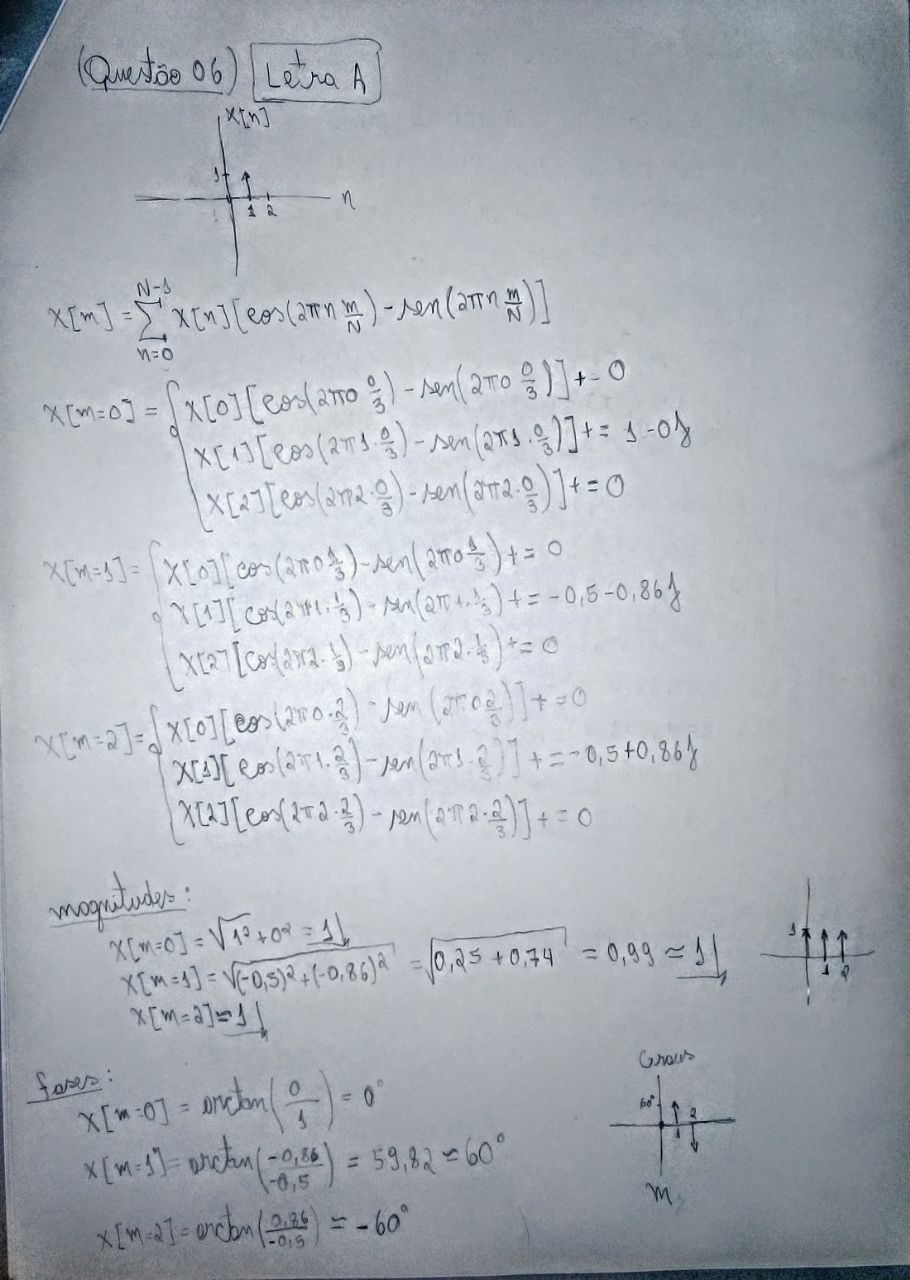 (Questão 06) Letra A
x[n]
1
1 2 n
N-1
X[m] = Σ x[n][cos(2πn m/N) - sen(2πn m/N)]
n=0
X[m=0] = { x[0][cos(2π0 0/3) - sen(2π0 0/3)] += 0
x[1][cos(2π1.0/3) - sen(2π1.0/3)] += 1-0j
x[2][cos(2π2.0/3) - sen(2π2.0/3)] += 0
X[m=1] = { x[0][cos(2π0 1/3) - sen(2π0 1/3) += 0
x[1][cos(2π1.1/3) - sen(2π1.1/3) += -0,5-0,86j
x[2][cos(2π2.1/3) - sen(2π2.1/3) += 0
X[m=2] = { x[0][cos(2π0.2/3) - sen(2π0 2/3)] += 0
x[1][cos(2π1.2/3) - sen(2π1.2/3)] += -0,5+0,86j
x[2][cos(2π2.2/3) - sen(2π2.2/3)] += 0
magnitudes:
X[m=0] = √1²+0² = 1
X[m=1] = √(-0,5)²+(-0,86)² = √0,25+0,74 = 0,99 ≈ 1
X[m=2] ≈ 1
1
1 2
fases:
X[m=0] = arctan(0/1) = 0°
X[m=1] = arctan(-0,86/-0,5) = 59,82 ≈ 60°
X[m=2] = arctan(0,86/-0,5) ≈ -60°
Graus
60°
1 2
m